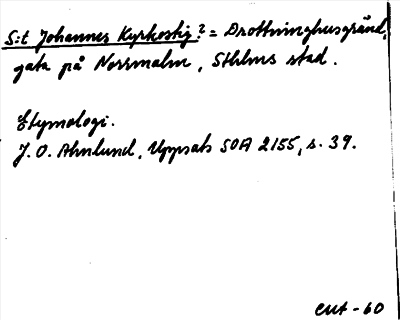 S:t Johannes Kyrkostig? = Drottninghusgränd,
gata på Norrmalm, Sthlms stad.
Etymologi.
J. O. Ahnlund, Uppsats SOA 2155, s. 39.
-60